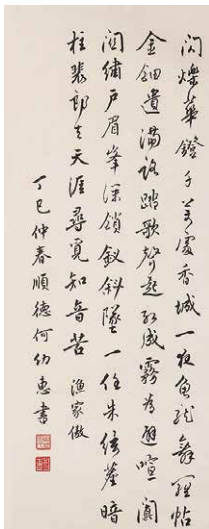 闪爍華鐙千萬處香城一夜魚龍舞羅帖
金鈿遺滿路踏歌聲起紅成霧為避喧闐
回繡戶眉峯深鎖釵斜墜一任朱絃塵暗
柱裴郎去天涯尋覓知音苦 漁家傲
丁巳仲春順德何幼惠書